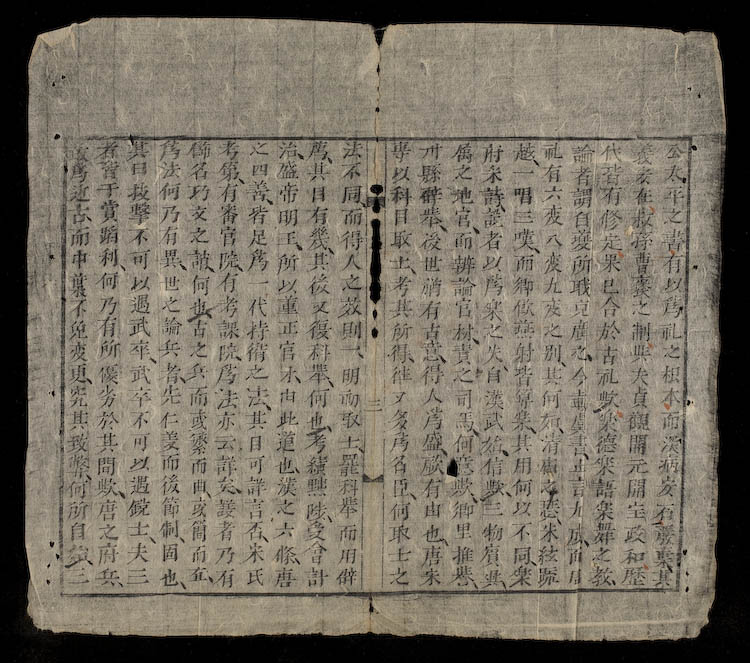 公太平之書有以爲礼之根本而漢病安有嚴棄其
義安在叔孫曹褒之制畔夫貞觀開元開宝政和歷
代皆有修定果已合於古礼歟樂德樂語樂舞之教
論者謂自夔所職克廣之今書止言九成而周
礼有六変八変九変之別其何如清廟之瑟朱絃疏
越一唱三嘆而鄉飲燕射皆樂其用何以不同樂
府采詩說者以爲樂之失自漢武始信歟三物賓興
属之地官而辨論官材責之司馬何意歟鄉里推譽
州縣辟舉後世猶有古意得人爲盛厥有由也唐宋
專以科目取士考其所得徃々多爲名臣何取士之
三
法不同而得人之效則一明初取士罷科舉而用辟
薦其目有幾其後又復科舉何也考績黜陟受會計
治盛帝明王所以董正官才由此道也漢之六條唐
之四善皆足爲一代持循之法其目可詳言否宋氏
考第有審官院有考課院爲法亦云詳矣議者乃有
飾名巧文之譏何也古之兵而或繁而曲或簡而直
爲法何乃有異世之論兵者先仁義而後節制固也
其曰技擊不可以遇武卒武卒不可以遇銳士夫三
者皆干賞蹈利何乃有所優劣於其間歟唐之府兵
最爲近古而中葉不免変更究其弊何所自歟三